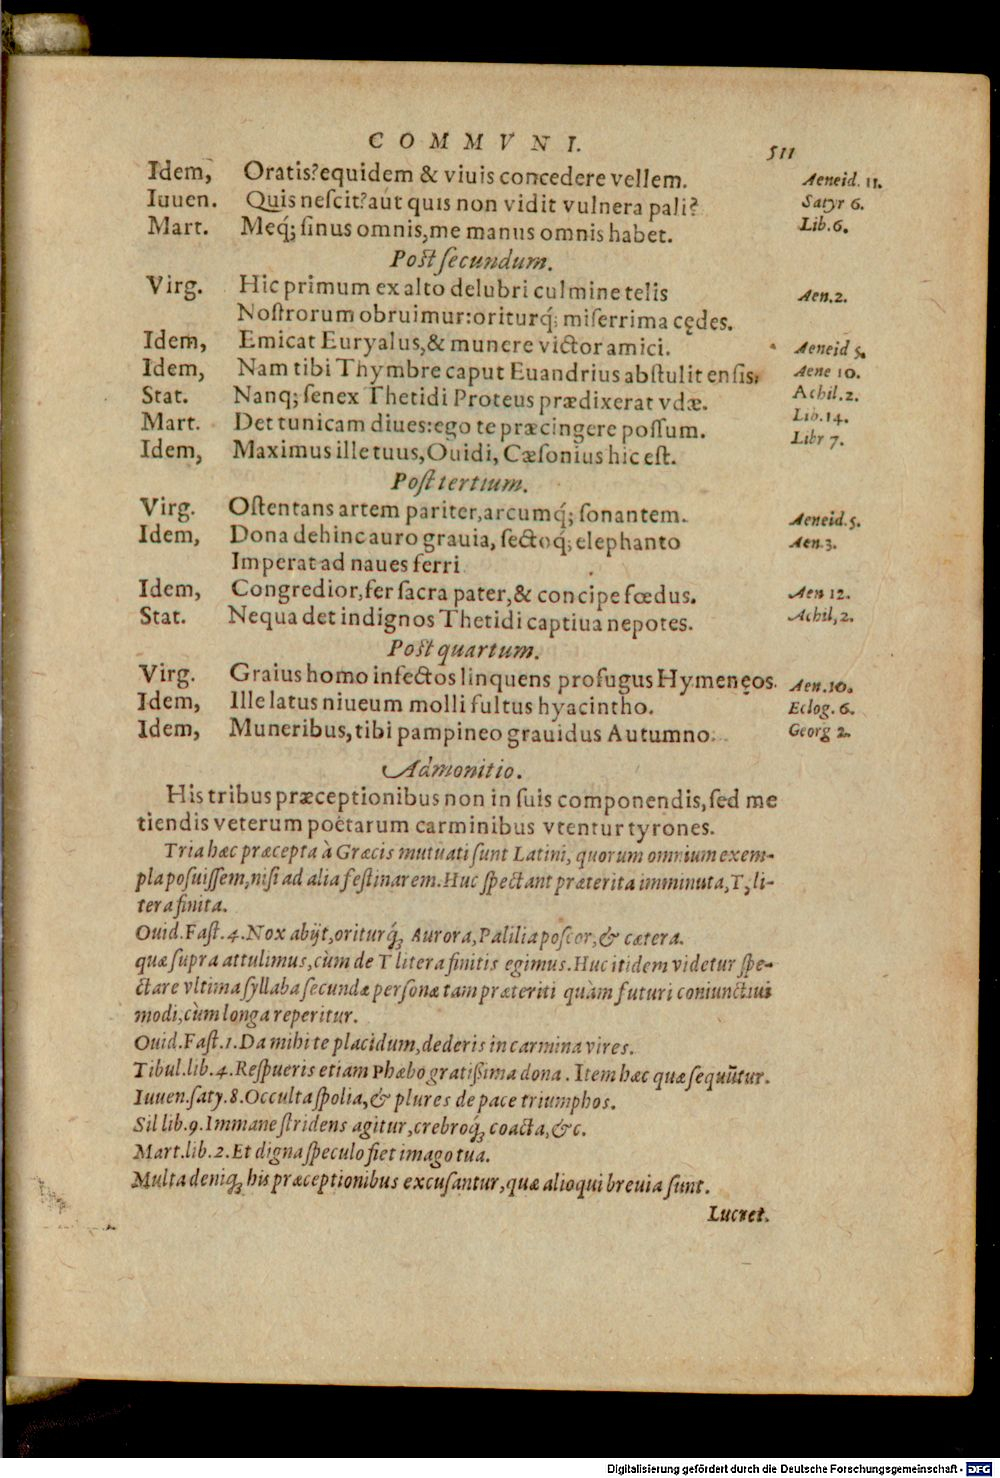 COMMVNI. 511
Idem, Oratis?equidem & viuis concedere vellem. Aeneid. 11.
Iuuen. Quis neſcit?aut quis non vidit vulnera pali? Satyr 6.
Mart. Meq́; ſinus omnis,me manus omnis habet. Lib.6.
Poſt ſecundum.
Virg. Hic primum ex alto delubri culmine telis Aen.2.
Noſtrorum obruimur:oriturq́; miſerrima cędes.
Idem, Emicat Euryalus,& munere victor amici. Aeneid 5.
Idem, Nam tibi Thymbre caput Euandrius abſtulit enſis. Aene 10.
Stat. Nanq; ſenex Thetidi Proteus prædixerat vdæ. Achil.2.
Mart. Det tunicam diues:ego te præcingere poſſum. Lib.14.
Idem, Maximus ille tuus,Ouidi, Cæſonius hic eſt. Libr 7.
Poſt tertium.
Virg. Oſtentans artem pariter,arcumq́; ſonantem. Aeneid.5.
Idem, Dona dehinc auro grauia, ſectoq́; elephanto Aen.3.
Imperat ad naues ferri
Idem, Congredior,fer ſacra pater,& concipe fœdus. Aen 12.
Stat. Nequa det indignos Thetidi captiua nepotes. Achil,2.
Poſt quartum.
Virg. Graius homo infectos linquens profugus Hymenęos. Aen.10.
Idem, Ille latus niueum molli fultus hyacintho. Eclog. 6.
Idem, Muneribus,tibi pampineo grauidus Autumno. Georg 2.
Admonitio.
His tribus præceptionibus non in ſuis componendis,ſed me
tiendis veterum poëtarum carminibus vtentur tyrones.
Tria hæc præcepta à Græcis mutuati ſunt Latini, quorum omnium exem-
pla poſuiſſem,niſi ad alia feſtinarem.Huc ſpectant præterita imminuta,T, li-
tera finita.
Ouid.Faſt.4.Nox abijt,oriturq́; Aurora,Palilia poſcor,& cætera.
quæ ſupra attulimus,cùm de T litera finitis egimus.Huc itidem videtur ſpe-
ctare vltima ſyllaba ſecundæ perſonæ tam præteriti quàm futuri coniunctiui
modi,cùm longa reperitur.
Ouid.Faſt.1.Da mihi te placidum,dederis in carmina vires.
Tibul.lib.4.Reſpueris etiam Phæbo gratiſſima dona. Item hæc quæ ſequūtur.
Iuuen.ſaty.8.Occulta ſpolia,& plures de pace triumphos.
Sil lib.9.Immane ſtridens agitur,crebroq́; coacta,&c.
Mart.lib.2.Et digna ſpeculo fiet imago tua.
Multa deniq; his præceptionibus excuſantur,quæ alioqui breuia ſunt.
Lucret.
Digitalisierung gefördert durch die Deutsche Forschungsgemeinschaft - DFG